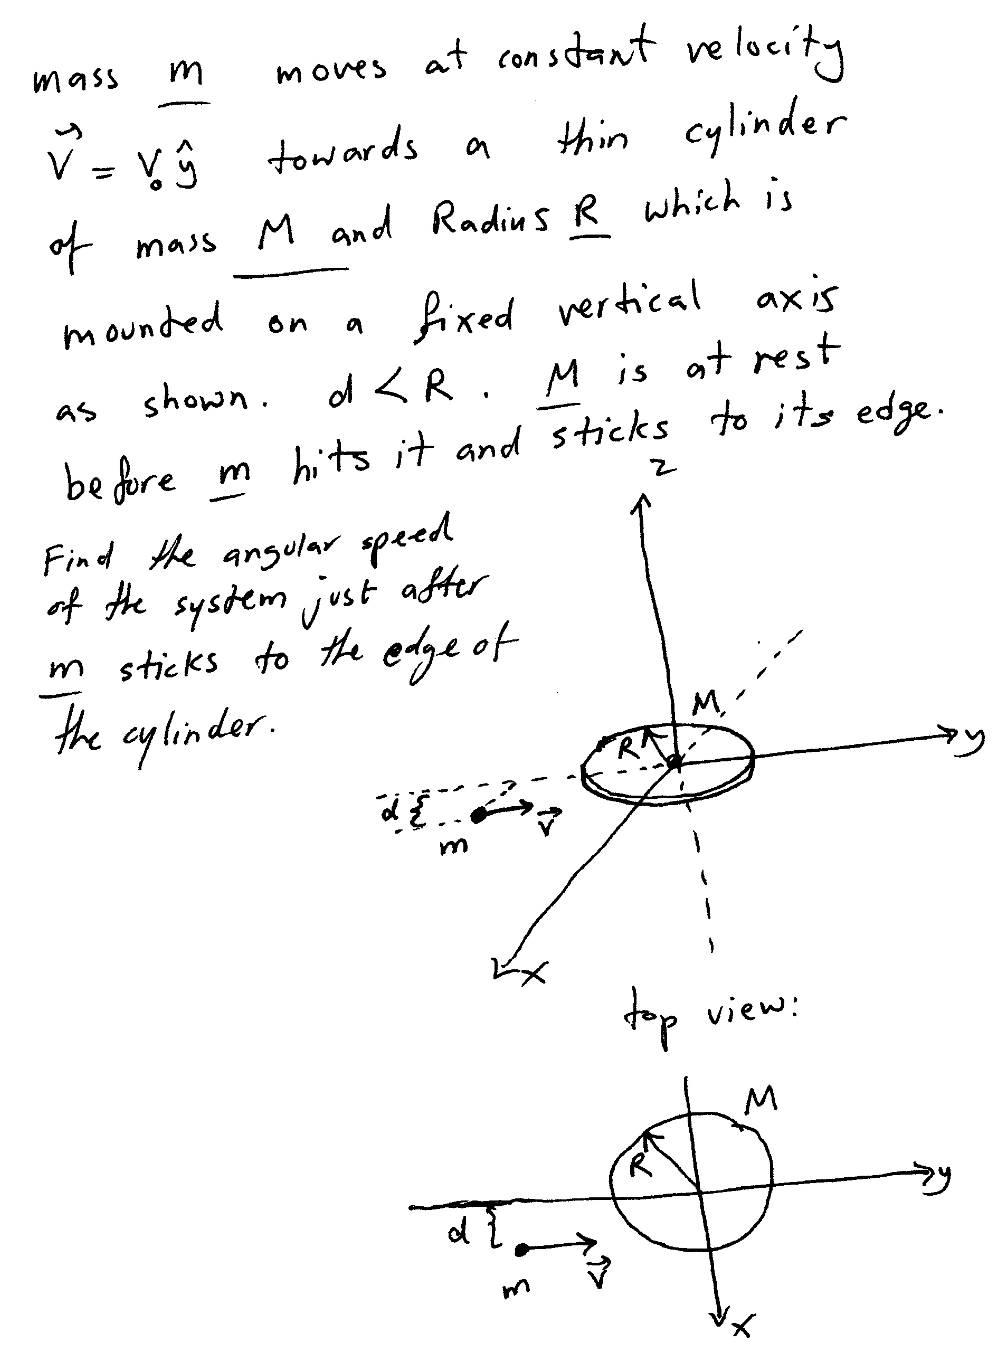 mass m moves at constant velocity
V⃗ = V₀ŷ towards a thin cylinder
of mass M and Radius R which is
mounted on a fixed vertical axis
as shown. d < R. M is at rest
before m hits it and sticks to its edge.
Find the angular speed
of the system just after
m sticks to the edge of
the cylinder.
z
M
R
y
d {
V⃗
m
x
top view:
M
R
y
d {
V⃗
m
x